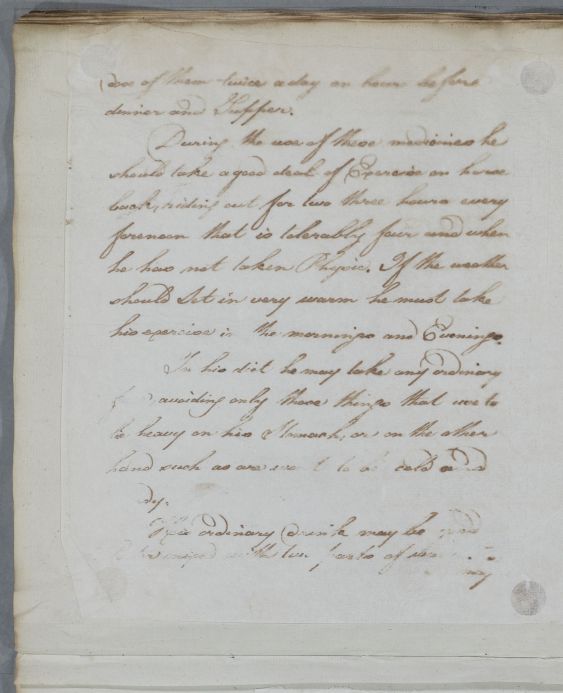 one of them twice a day an hour before
dinner and Supper.
During the use of these medicines he
should take a good deal of Exercise on horse
back, riding out for two three hours every
forenoon that is tolerably fair and when
he has not taken Physic. If the weather
should Set in very warm he must take
his exercise in the mornings and Evenings.
In his diet he may take any ordinary
avoiding only those things that are to
be heavy on his Stomach, or on the other
hand such as are to be cold and
dy.
His ordinary drink may be
mixed with two parts of